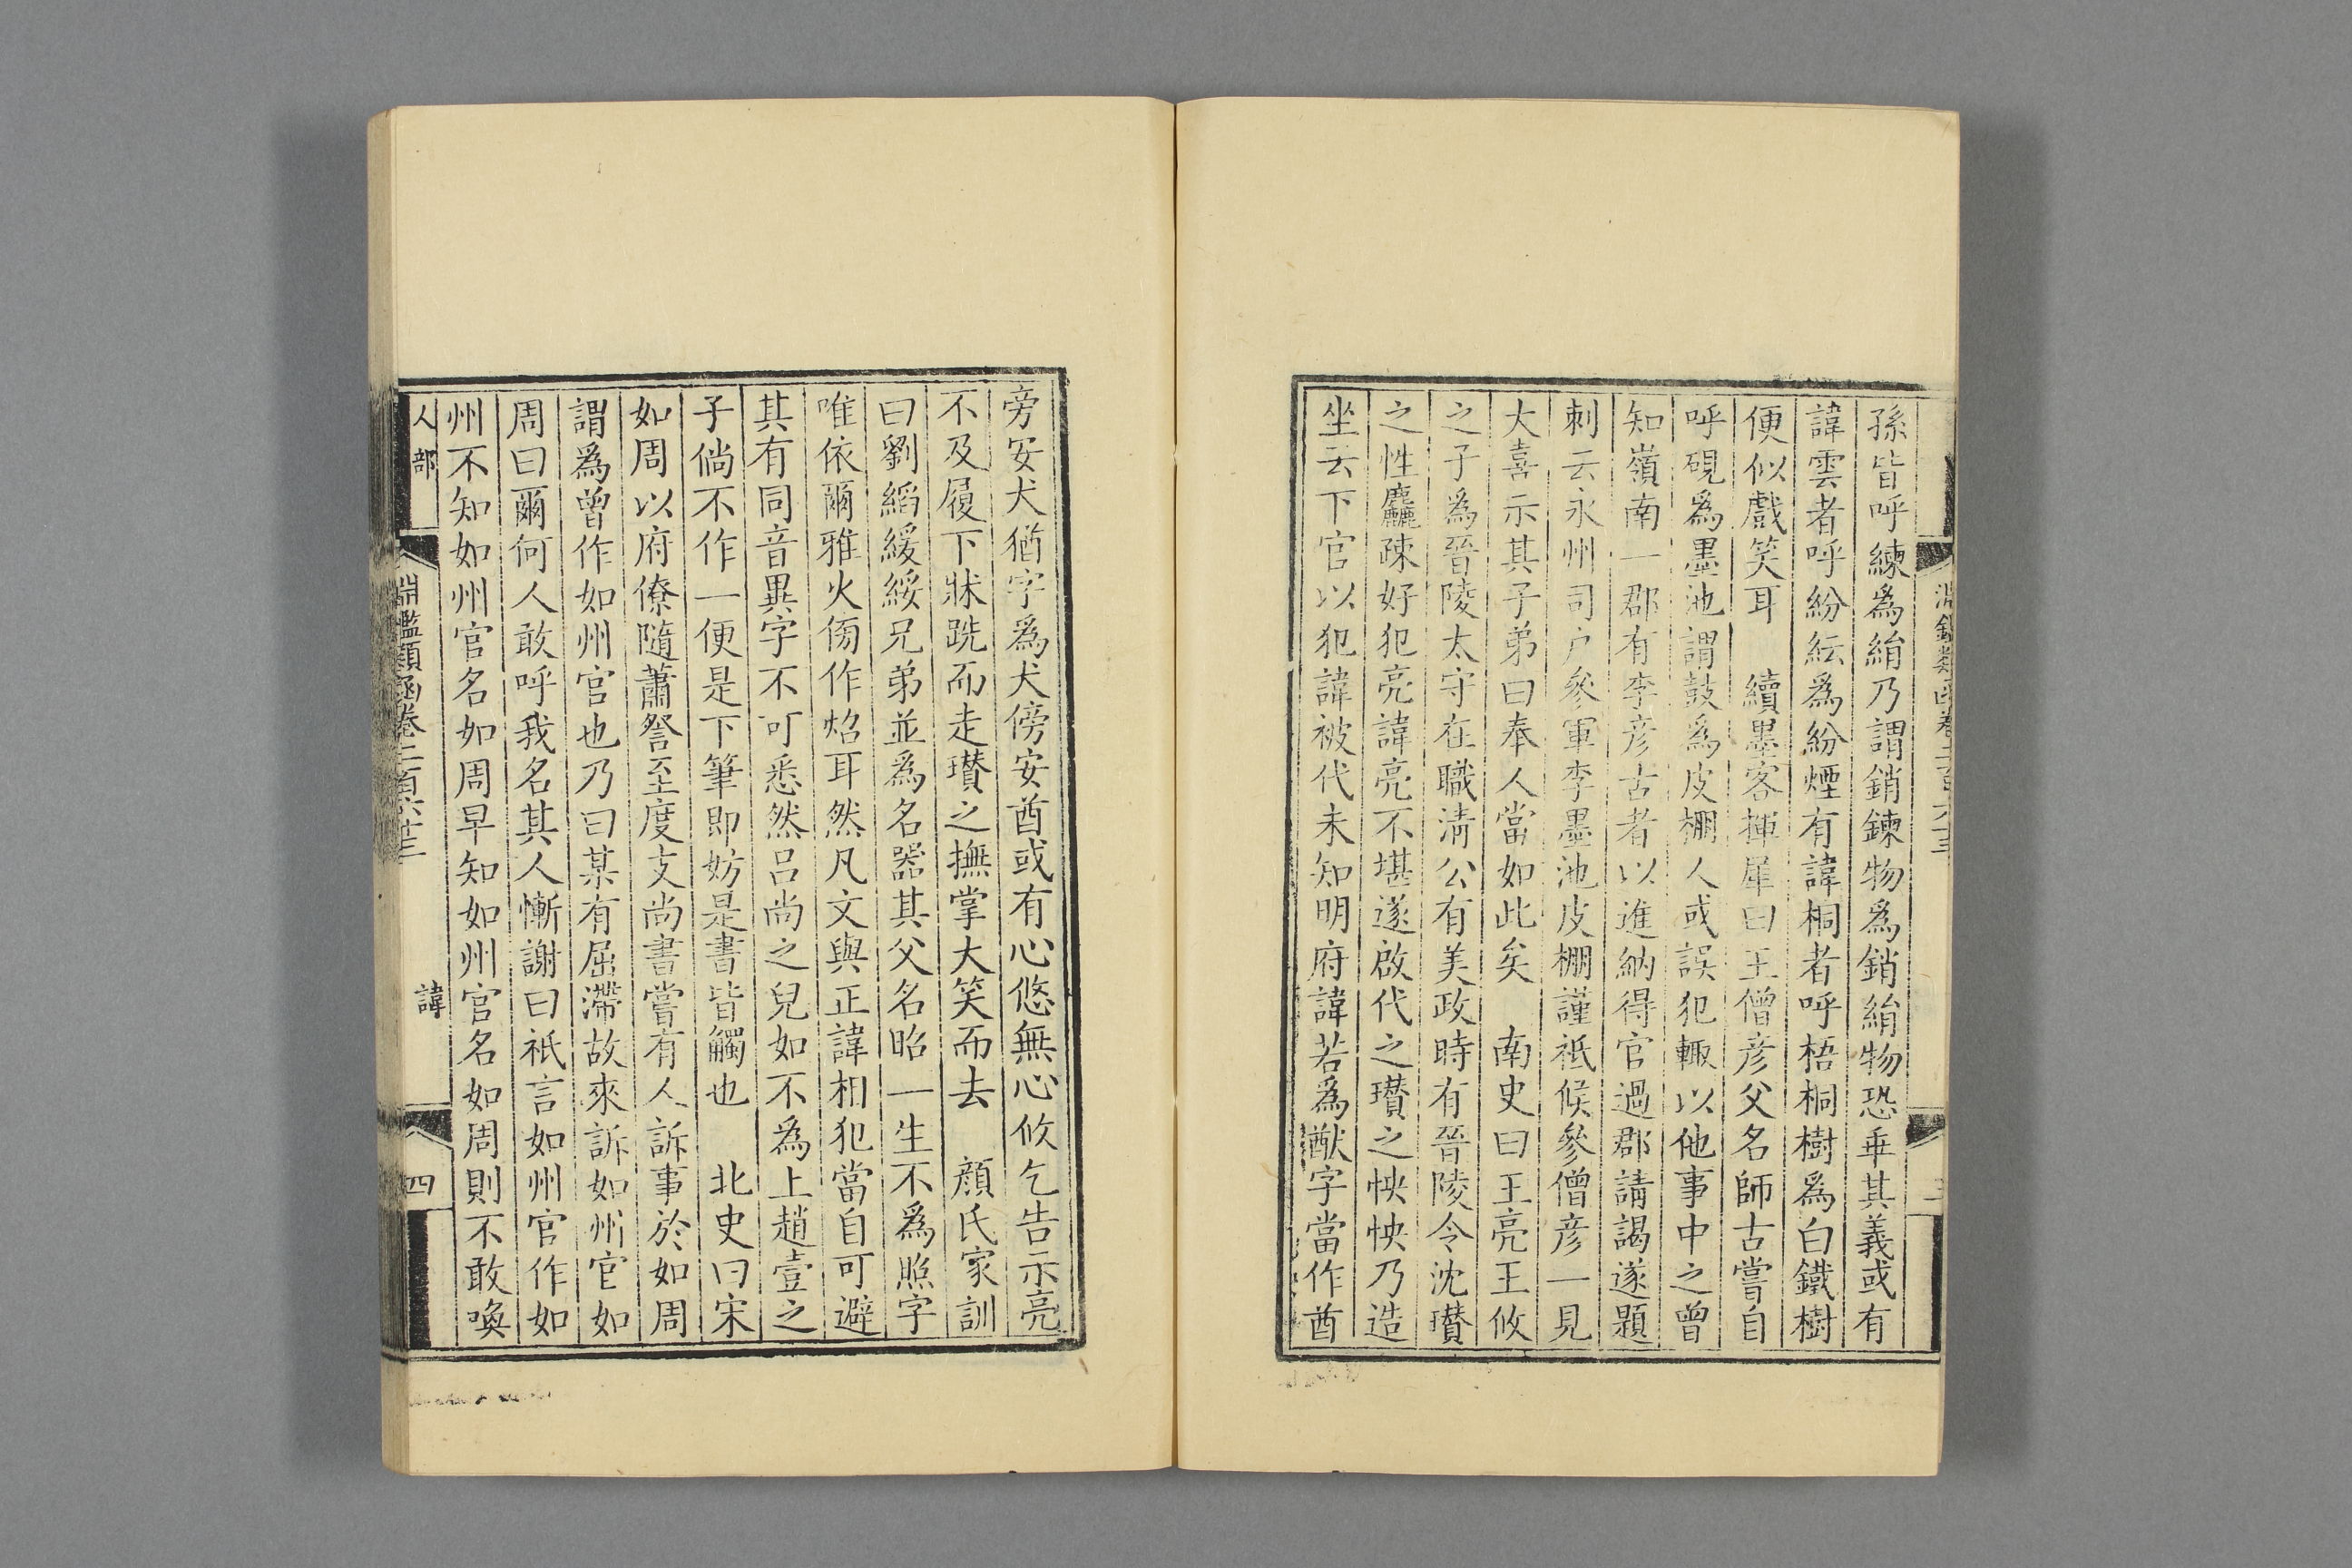 孫皆呼練爲絹乃謂銷鍊物爲銷絹物恐乖其義或有
諱雲者呼紛紜爲紛煙有諱桐者呼梧桐樹爲白鐵樹
便似戲笑耳　續墨客揮犀曰王僧彥父名師古嘗自
呼硯爲墨池謂鼓爲皮棚人或誤犯輙以他事中之曾
知嶺南一郡有李彥古者以進納得官過郡請謁遂題
刺云永州司户參軍李墨池皮棚謹祗候參僧彥一見
大喜示其子弟曰奉人當如此矣　南史曰王亮王攸
之子爲晉陵太守在職淸公有美政時有晉陵令沈瓚
之性麤疎好犯亮諱亮不堪遂啟代之瓚之怏怏乃造
坐云下官以犯諱被代未知明府諱若爲猷字當作酋
旁安犬猶字爲犬傍安酋或有心悠無心攸乞告示亮
不及履下牀跣而走瓚之撫掌大笑而去　顔氏家訓
曰劉縚緩綏兄弟並爲名器其父名昭一生不爲照字
唯依爾雅火㑥作炤耳然凡文與正諱相犯當自可避
其有同音異字不可悉然呂尚之兒如不爲上趙壹之
子倘不作一便是下筆即妨是書皆觸也　北史曰宋
如周以府僚隨蕭詧至度支尚書嘗有人訴事於如周
謂爲曾作如州官也乃曰某有屈滯故來訴如州官如
周曰爾何人敢呼我名其人慚謝曰祇言如州官作如
州不知如州官名如周早知如州官名如周則不敢喚
人部
淵鑑類函卷二百六十三
諱
四